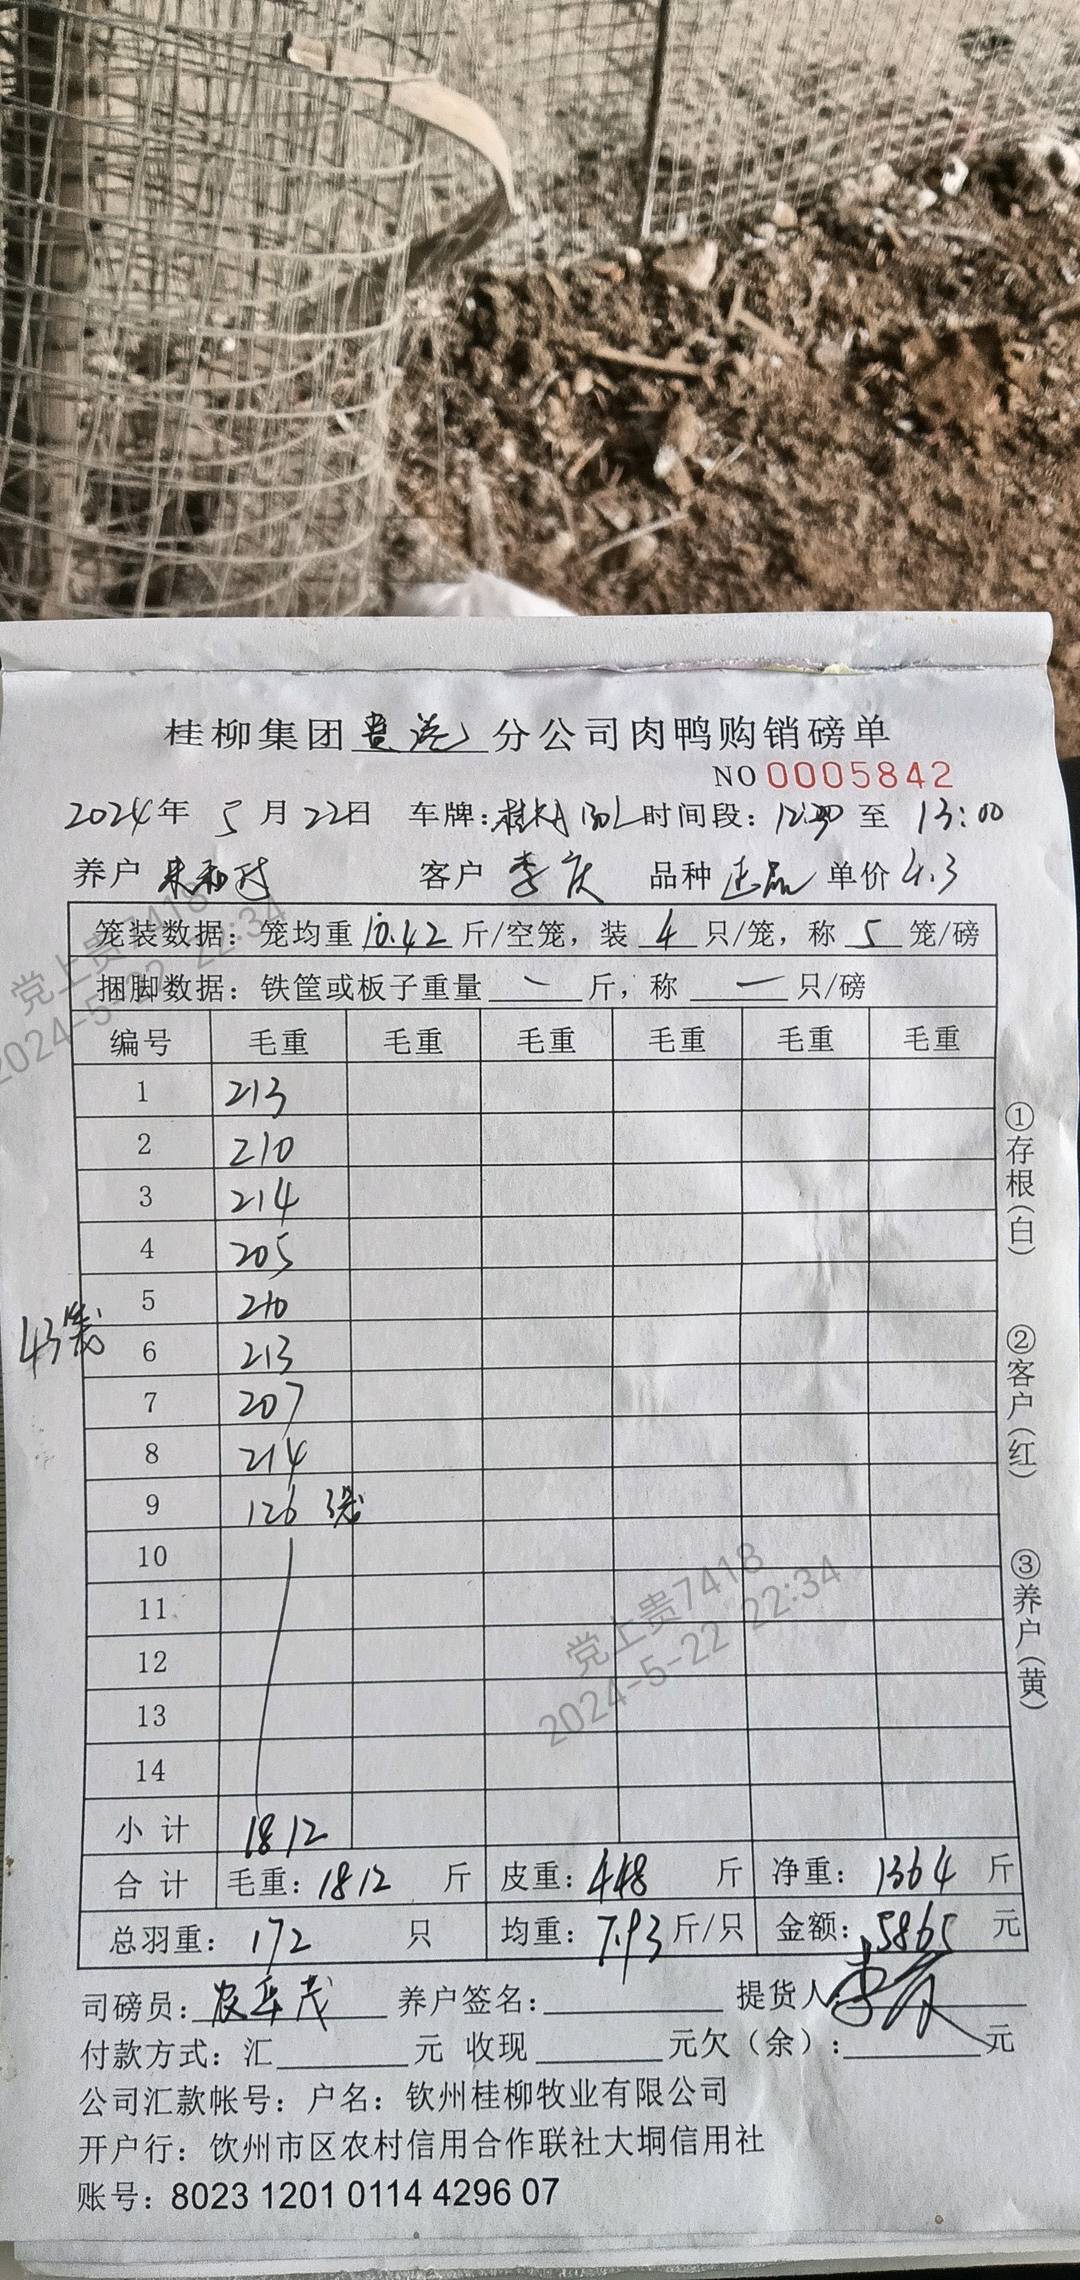 桂柳集团贵港分公司肉鸭购销磅单
NO 0005842
2024年 5月 22日 车牌: 时间段: 12:30 至 13:00
养户 客户 李庆 品种 正品 单价 4.3
笼装数据: 笼均重 10.42 斤/空笼, 装 4 只/笼, 称 5 笼/磅
捆脚数据: 铁筐或板子重量 一 斤, 称 一 只/磅
编号 毛重 毛重 毛重 毛重 毛重 毛重
1 213
2 210
3 214
4 205
5 210
6 213
7 207
8 214
9 126 3笼
10
11
12
13
14
小计 1812
合计 毛重: 1812 斤 皮重: 448 斤 净重: 1364 斤
总羽重: 172 只 均重: 7.93 斤/只 金额: 5865 元
43笼
①存根(白)
②客户(红)
③养户(黄)
司磅员: 养户签名: 提货人: 李庆
付款方式: 汇 元 收现 元欠(余): 元
公司汇款帐号: 户名: 钦州桂柳牧业有限公司
开户行: 钦州市区农村信用合作联社大垌信用社
账号: 8023 1201 0114 4296 07
党上贵7418
2024-5-22 22:34
党上贵7418
2024-5-22 22:34